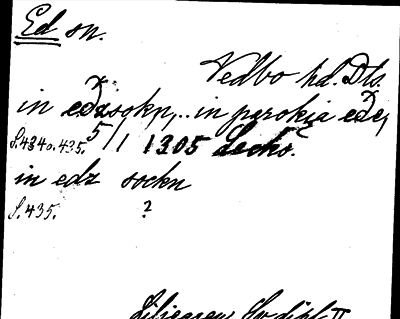 Ed sn.
Vedbo hd. Dls.
in edzsokn,.. in parokia edz,
S. 434 o. 435. 5/1 1305
in edz sockn
S. 435. ?
Liliegren Sv dipl II